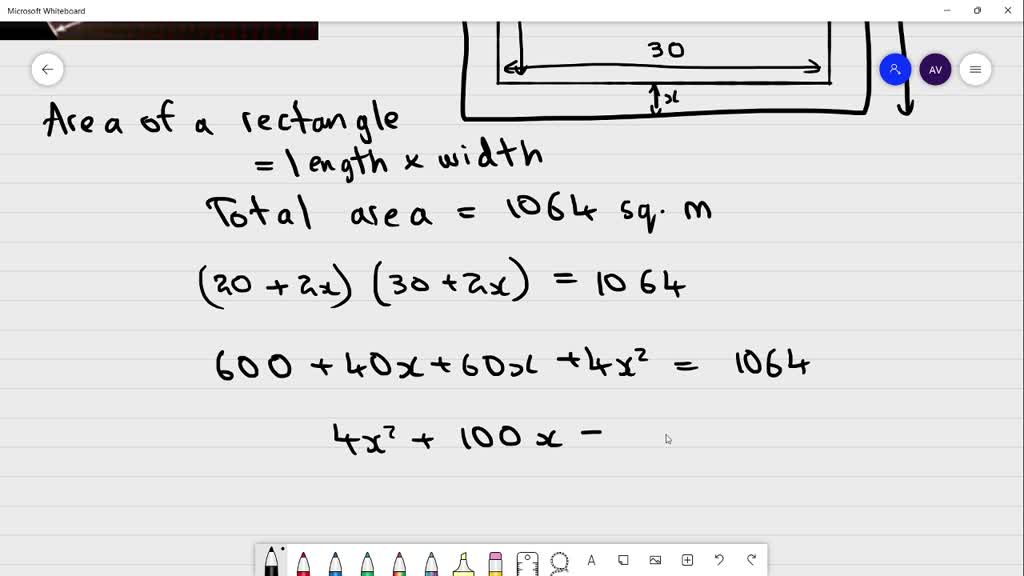 Microsoft Whiteboard
30
x
AV
Area of a rectangle
= length x width
Total area = 1064 sq. m
(20 + 2x) (30 + 2x) = 1064
600 + 40x + 60x + 4x² = 1064
4x² + 100x -
A